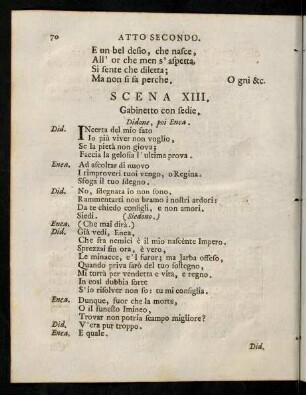 70 ATTO SECONDO.
E un bel desio, che nasce,
All' or che men s' aspetta,
Si sente che diletta;
Ma non si sa perche. O gni &c.
SCENA XIII.
Gabinetto con sedie.
Didone, poi Enea.
Did. INcerta del mio fato
Io più viver non voglio,
Se la pietà non giova;
Faccia la gelosia l' ultima prova.
Enea. Ad ascoltar di nuovo
I rimproveri tuoi vengo, o Regina.
Sfoga il tuo sdegno.
Did. No, sdegnata io non sono.
Rammentarti non bramo i nostri ardori:
Da te chiedo consigli, e non amori.
Siedi. (Siedono.)
Enea. (Che mai dirà.)
Did. Già vedi, Enea,
Che fra nemici è il mio nascente Impero.
Sprezzai fin ora, è vero,
Le minacce, e 'l furor; ma Jarba offeso,
Quando priva sarò del tuo sostegno,
Mi torrà per vendetta e vita, e regno.
In così dubbia sorte
S'io risolver non so: tu mi consiglia.
Enea. Dunque, fuor che la morte,
O il funesto Imineo,
Trovar non potria scampo migliore?
Did. V'era pur troppo.
Enea. E quale.
Did.